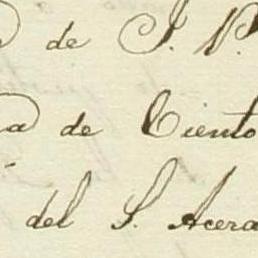 de J. N.
a de Ciento
del S. Acera